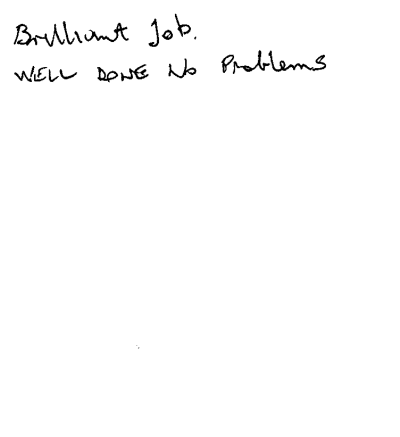 Brilliant Job.
WELL DONE NO Problems